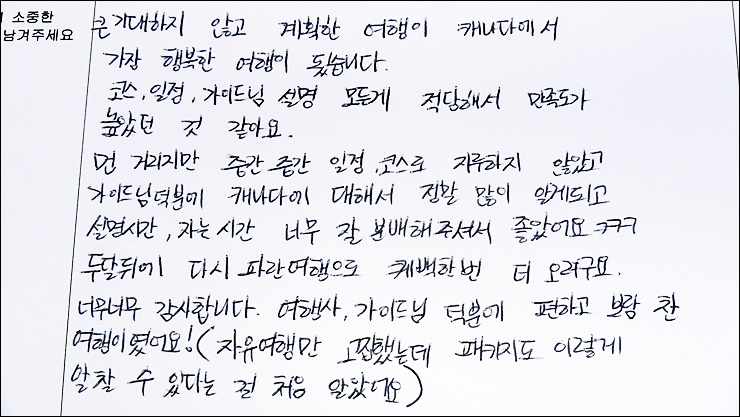 소중한
남겨주세요
큰기대하지 않고 계획한 여행이 캐나다에서
가장 행복한 여행이 됬습니다.
코스, 일정, 가이드님 설명 모든게 적당해서 만족도가
높았던 것 같아요.
먼 거리지만 중간중간 일정, 코스로 지루하지 않았고
가이드님덕분에 캐나다에 대해서 정말 많이 알게되고
설명시간, 자는시간 너무 잘 분배해주셔서 좋았어요 ㅋㅋㅋ
두달뒤에 다시 파란여행으로 퀘백한번 더 오려구요.
너무너무 감사합니다. 여행사, 가이드님 덕분에 편하고 보람 찬
여행이였어요! (자유여행만 고집했는데 패키지도 이렇게
알찰 수 있다는 걸 처음 알았어요)